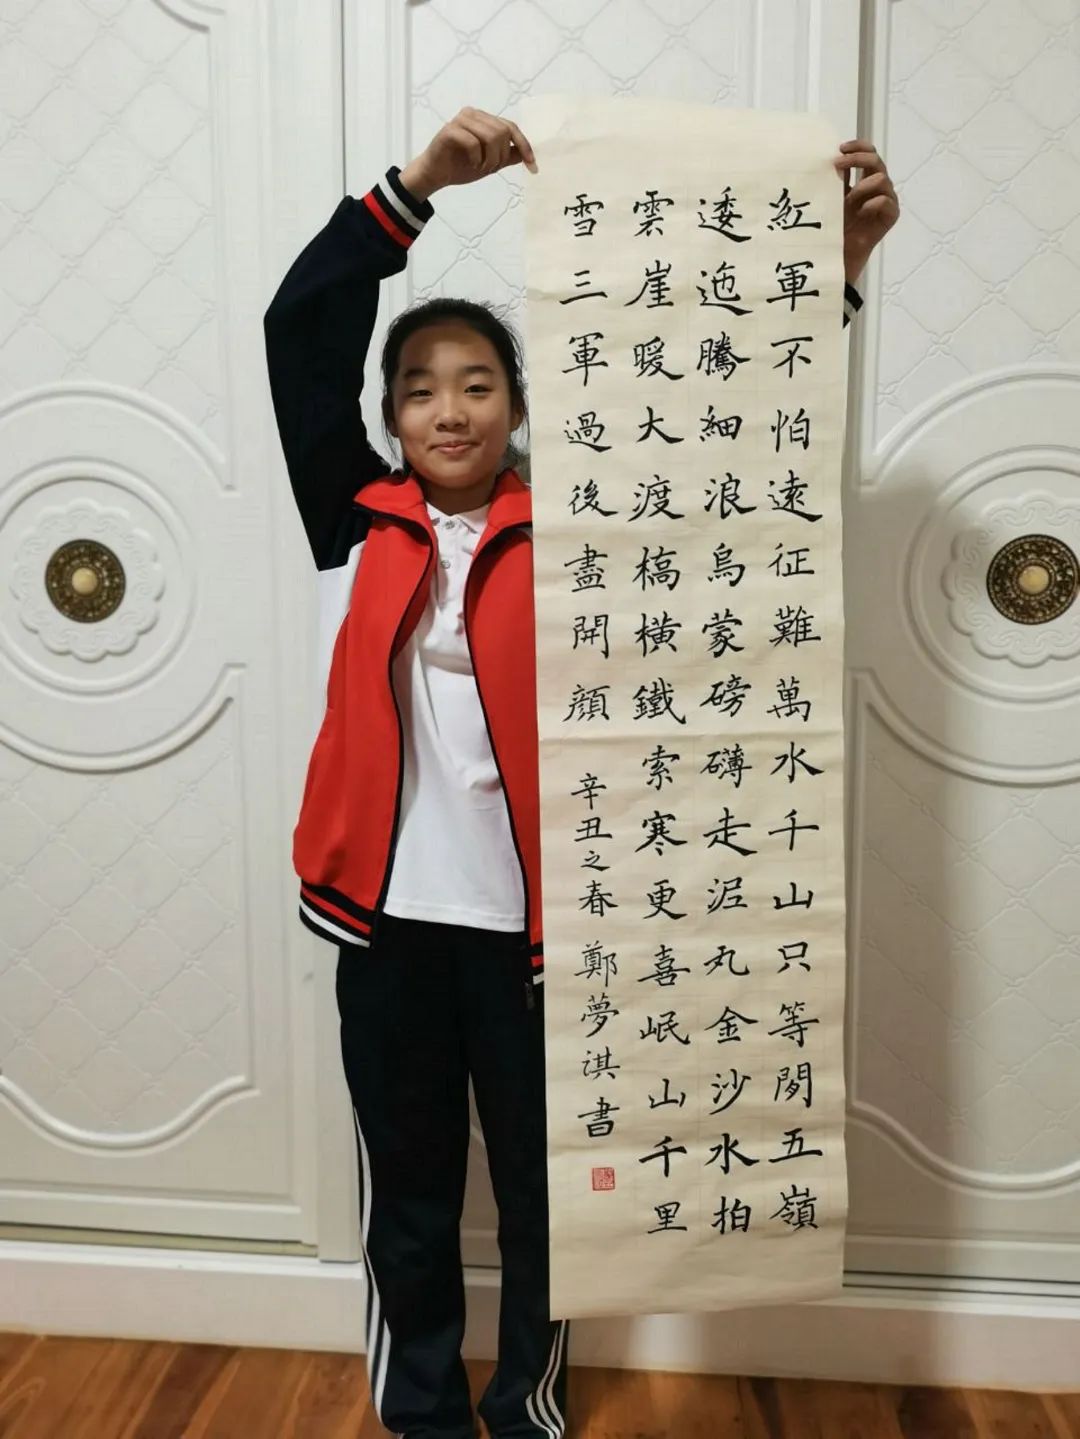 紅軍不怕遠征難萬水千山只等閒五嶺
逶迤騰細浪烏蒙磅礴走泥丸金沙水拍
雲崖暖大渡橋橫鐵索寒更喜岷山千里
雪三軍過後盡開顔 辛丑之春 鄭夢淇書